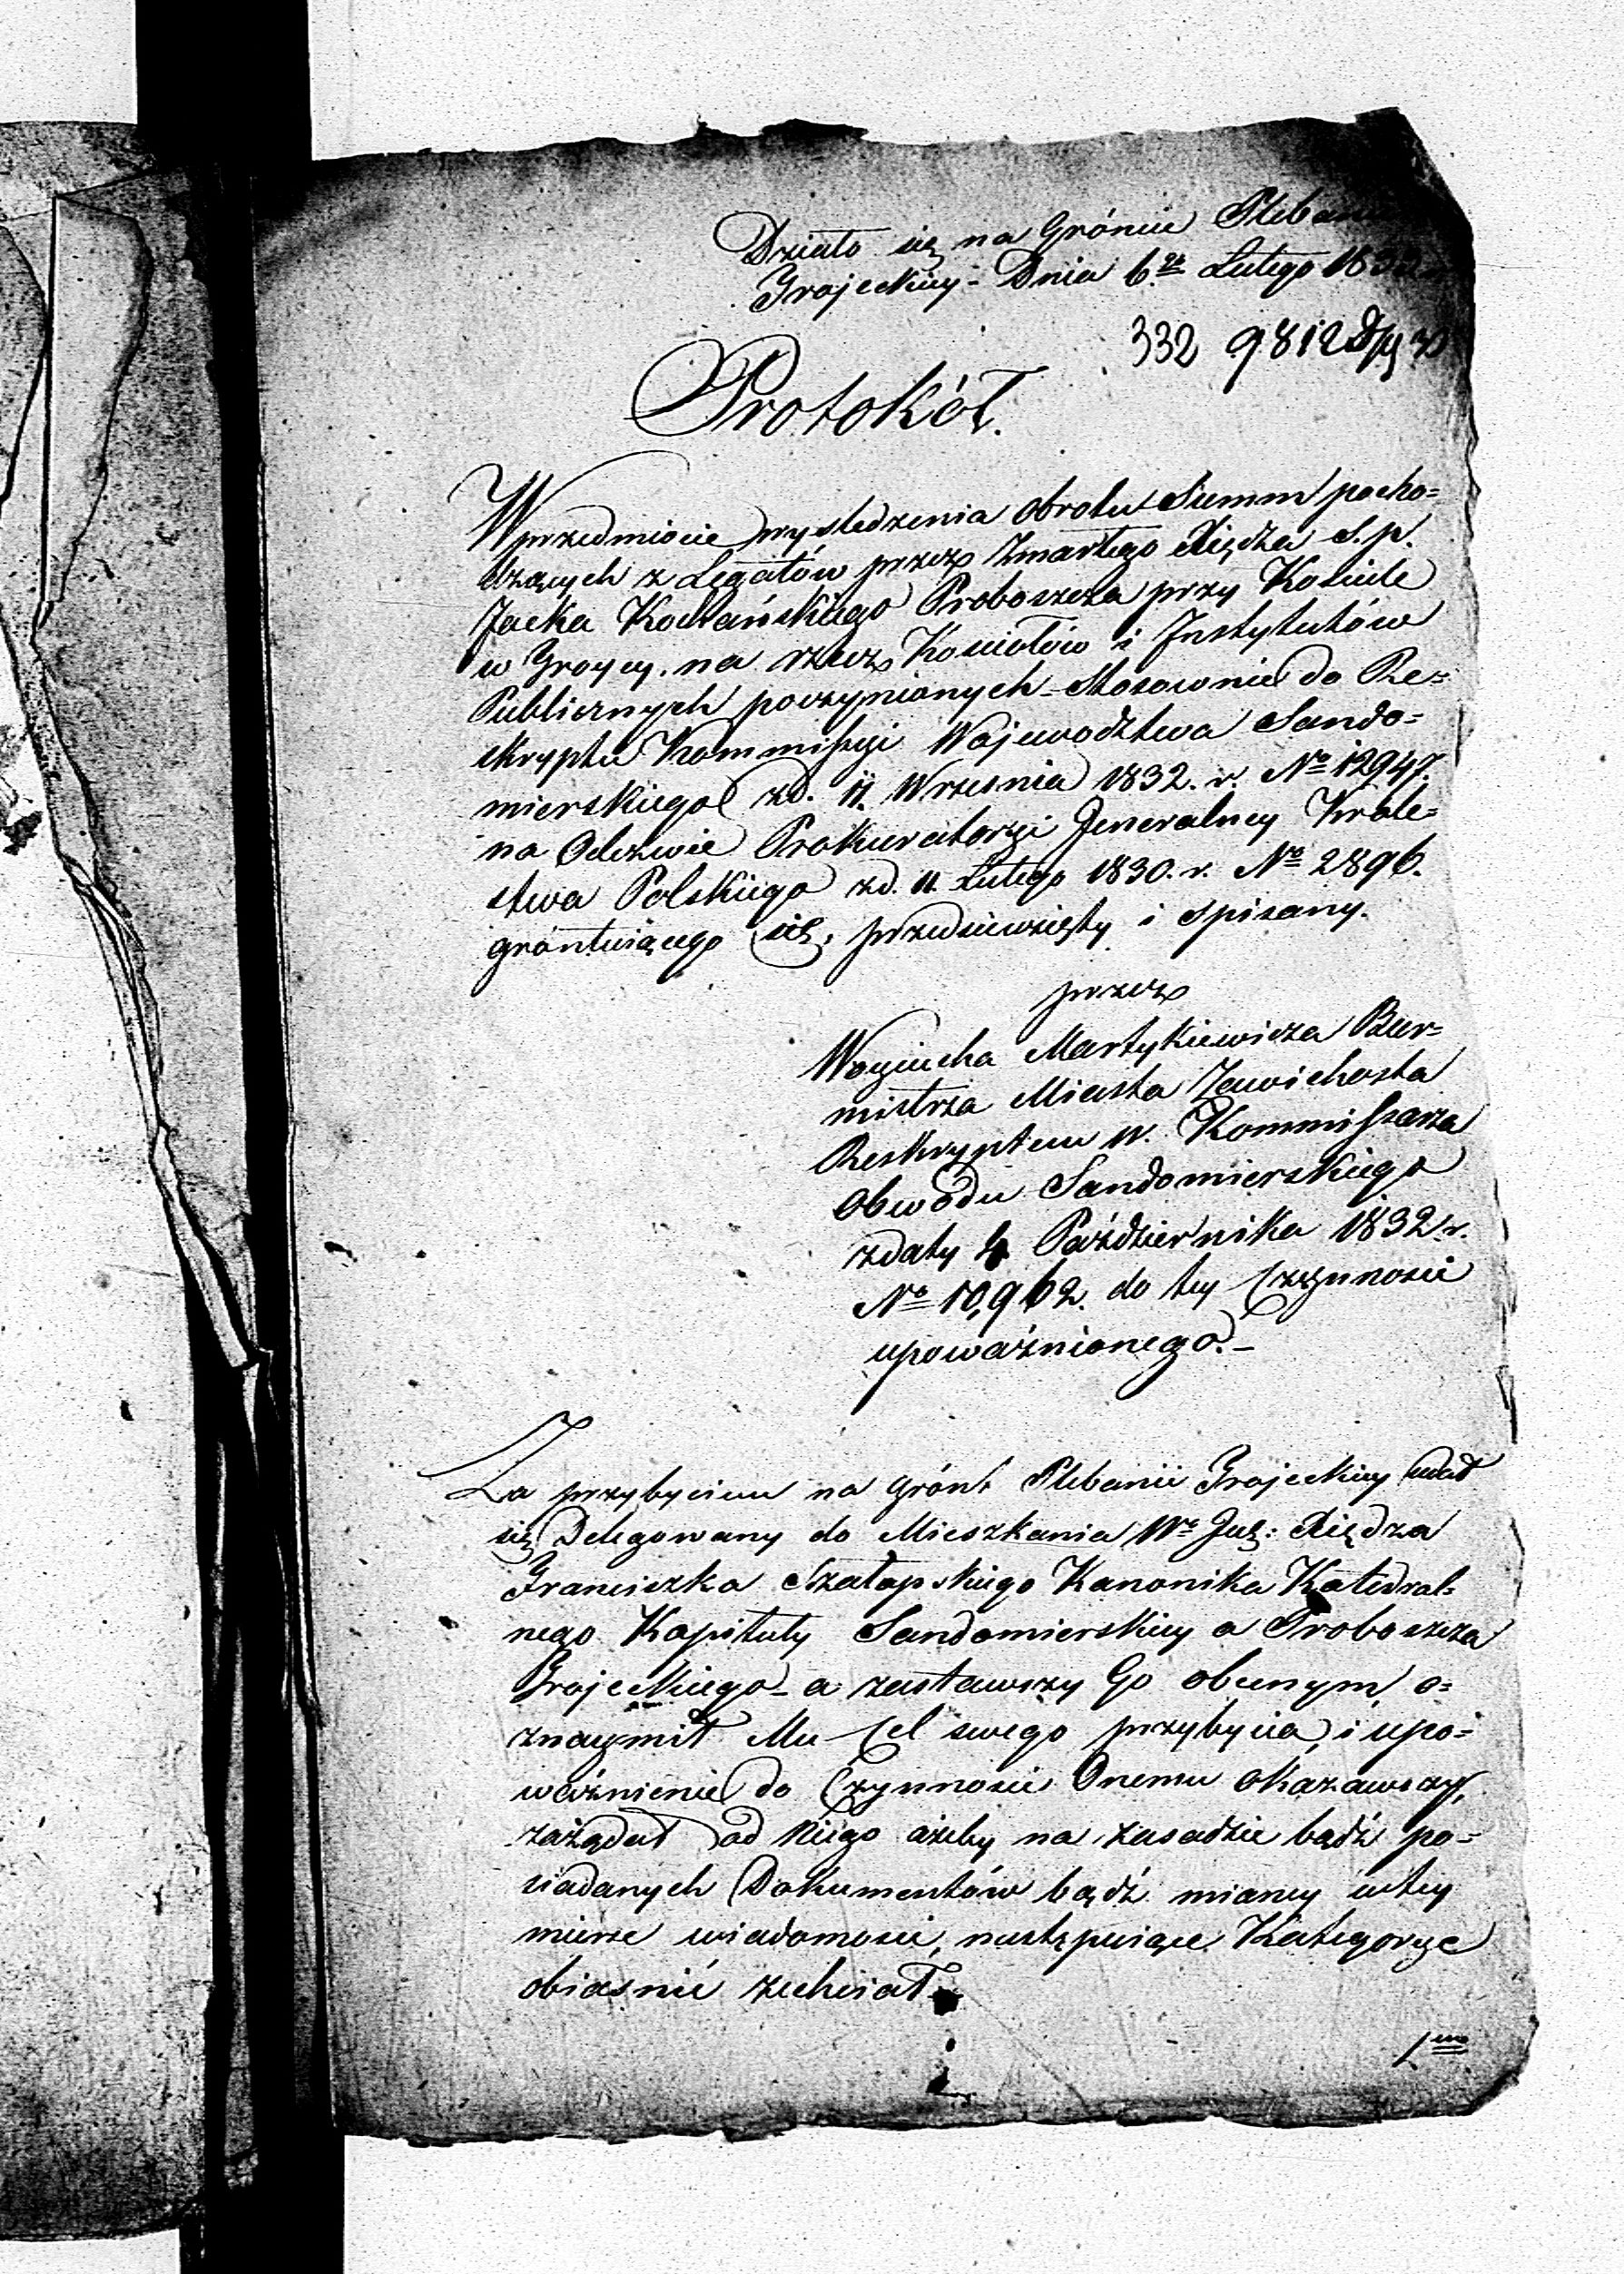 Działo się na Gróncie Plebanii
Grojeckiey - Dnia 6go Lutego 183
332 9812
Protokół.
W przedmiocie wyśledzenia obrotu Summ pocho=
dzących z Legatów przez zmarłego Xiędza S. p.
Jacka Kochańskiego Proboszcza przy Kościele
w Groycy. na rzecz Kościołów i Instytutów
Publicznych poczynionych - Stosownie do Re=
skryptu Kommissyi Województwa Sando=
mierskiego zd. 11. Września 1832. r. No 12947.
na Odezwie Prokuratoryi Jeneralney Króle=
stwa Polskiego zd. 11. Lutego 1830. r. No 2896.
gróntuiącego się, przedsiewzięty i spisany.
przez
Woyciecha Martykiewicza Bur=
mistrza Miasta Zawichosta
Reskryptem W. Kommissarza
Obwodu Sandomierskiego
zdaty 4 Października 1832. r.
No 10,962. do tey Czynności
upoważnionego. -
Za przybyciem na grónt Plebanii Grojeckiey udał
się Delegowany do Mieszkania Wo Jmę: Xiędza
Franciszka Szałapskiego Kanonika Katedral=
nego Kapituły Sandomierskiey a Proboszcza
Grojeckiego - a zastawszy Go obecnym o=
znaymił Mu Cel swego przybycia, i upo=
ważnienie do Czynności Onemu okazawszy,
zażądał od Niego ażeby na zasadzie bądź po=
siadanych Dokumentów bądź mianey w tey
mierze wiadomości, następuiące Kategorye
obiasnić zechciał.
1mo